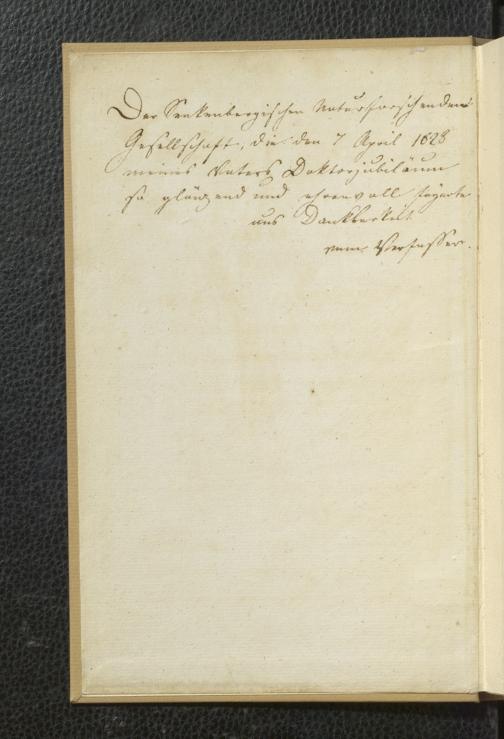 Der Senkenbergischen Naturforschenden
Gesellschaft, die den 7 April 1828
meines Vaters Doktorjubiläum
so glänzend und ehrenvoll feyerte
aus Dankbarkeit
vom Verfasser.